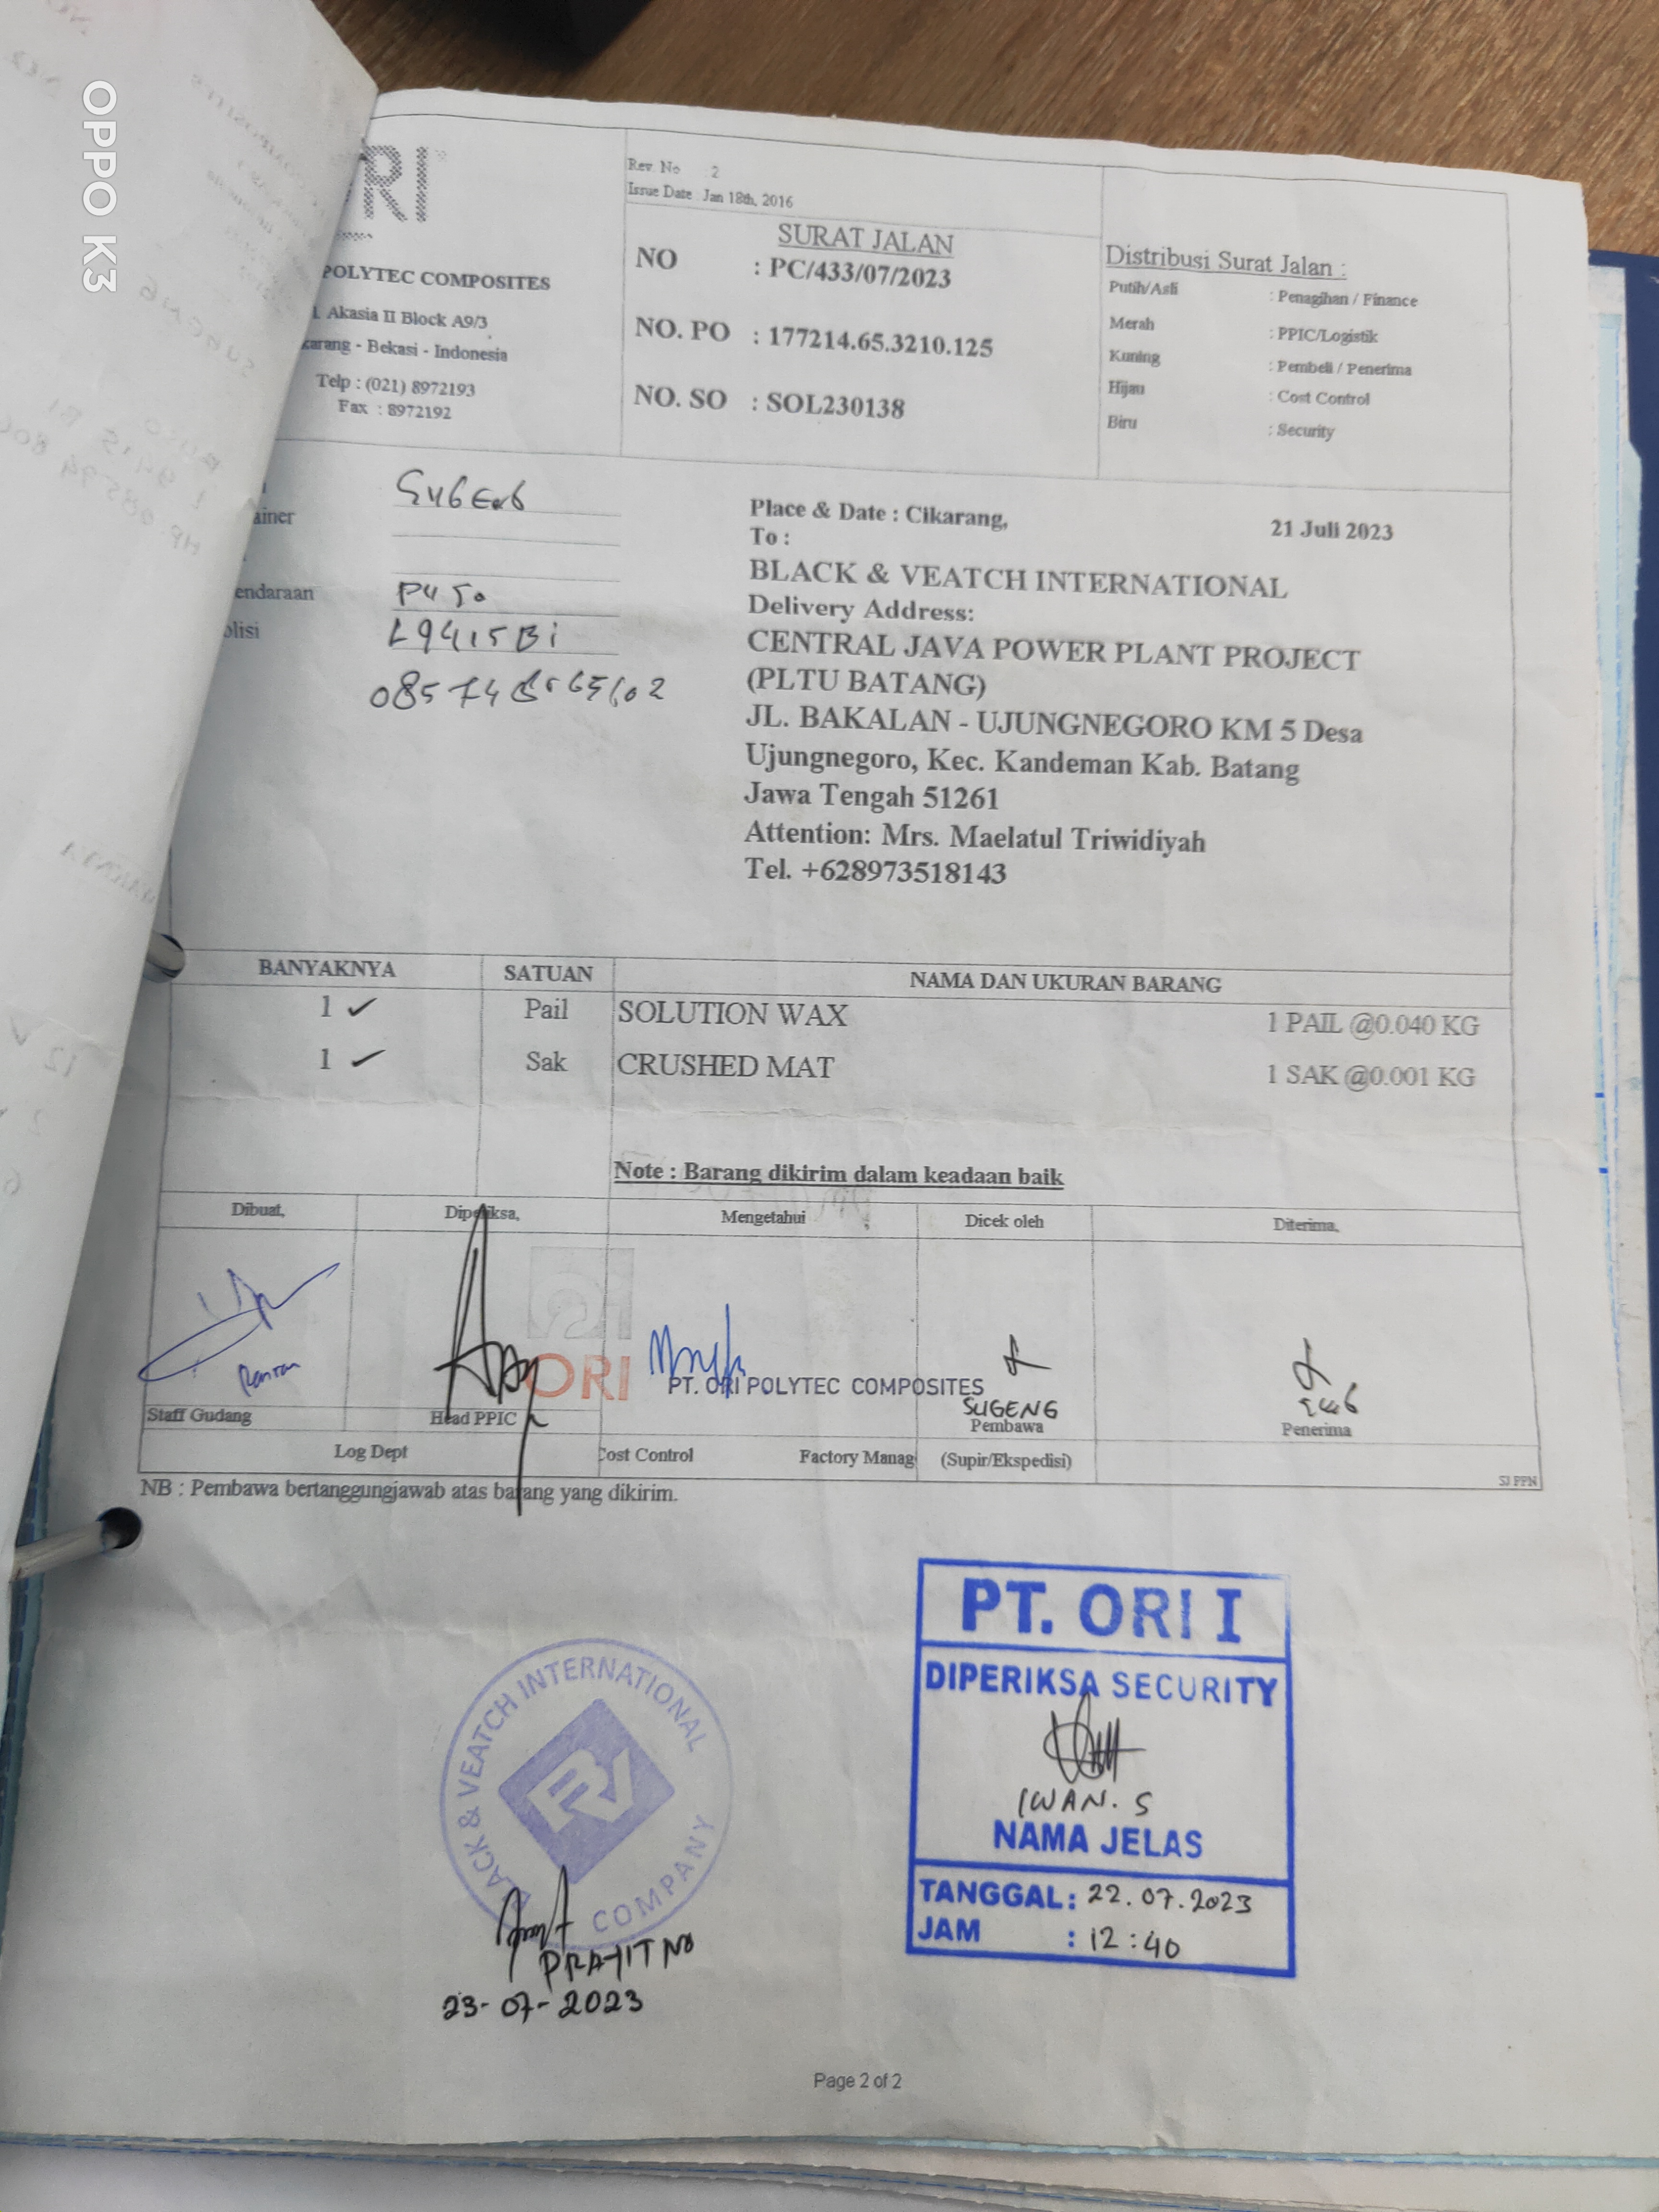 OPPO K3
RI
POLYTEC COMPOSITES
Akasia II Block A9/3
karang - Bekasi - Indonesia
Telp : (021) 8972193
Fax : 8972192
Rev. No : 2
Issue Date : Jan 18th, 2016
SURAT JALAN
NO : PC/433/07/2023
NO. PO : 177214.65.3210.125
NO. SO : SOL230138
Distribusi Surat Jalan :
Putih/Asli : Penagihan / Finance
Merah : PPIC/Logistik
Kuning : Pembeli / Penerima
Hijau : Cost Control
Biru : Security
SUGENG
ainer
endaraan
olisi L9415Bi
Place & Date : Cikarang, 21 Juli 2023
To :
BLACK & VEATCH INTERNATIONAL
Delivery Address:
CENTRAL JAVA POWER PLANT PROJECT
(PLTU BATANG)
JL. BAKALAN - UJUNGNEGORO KM 5 Desa
Ujungnegoro, Kec. Kandeman Kab. Batang
Jawa Tengah 51261
Attention: Mrs. Maelatul Triwidiyah
Tel. +628973518143
BANYAKNYA SATUAN NAMA DAN UKURAN BARANG
1 ✓ Pail SOLUTION WAX 1 PAIL @0.040 KG
1 ✓ Sak CRUSHED MAT 1 SAK @0.001 KG
Note : Barang dikirim dalam keadaan baik
Dibuat, Diperiksa, Mengetahui Dicek oleh Diterima,
ORI
PT. ORI POLYTEC COMPOSITES
SUGENG
Staff Gudang Head PPIC Pembawa Penerima
Log Dept Cost Control Factory Manag (Supir/Ekspedisi)
SJ PPN
NB : Pembawa bertanggungjawab atas barang yang dikirim.
PT. ORI I
DIPERIKSA SECURITY
IWAN. S
NAMA JELAS
TANGGAL : 22.07.2023
JAM : 12:40
BLACK & VEATCH INTERNATIONAL
COMPANY
BV
PRAYITNO
23-07-2023
Page 2 of 2